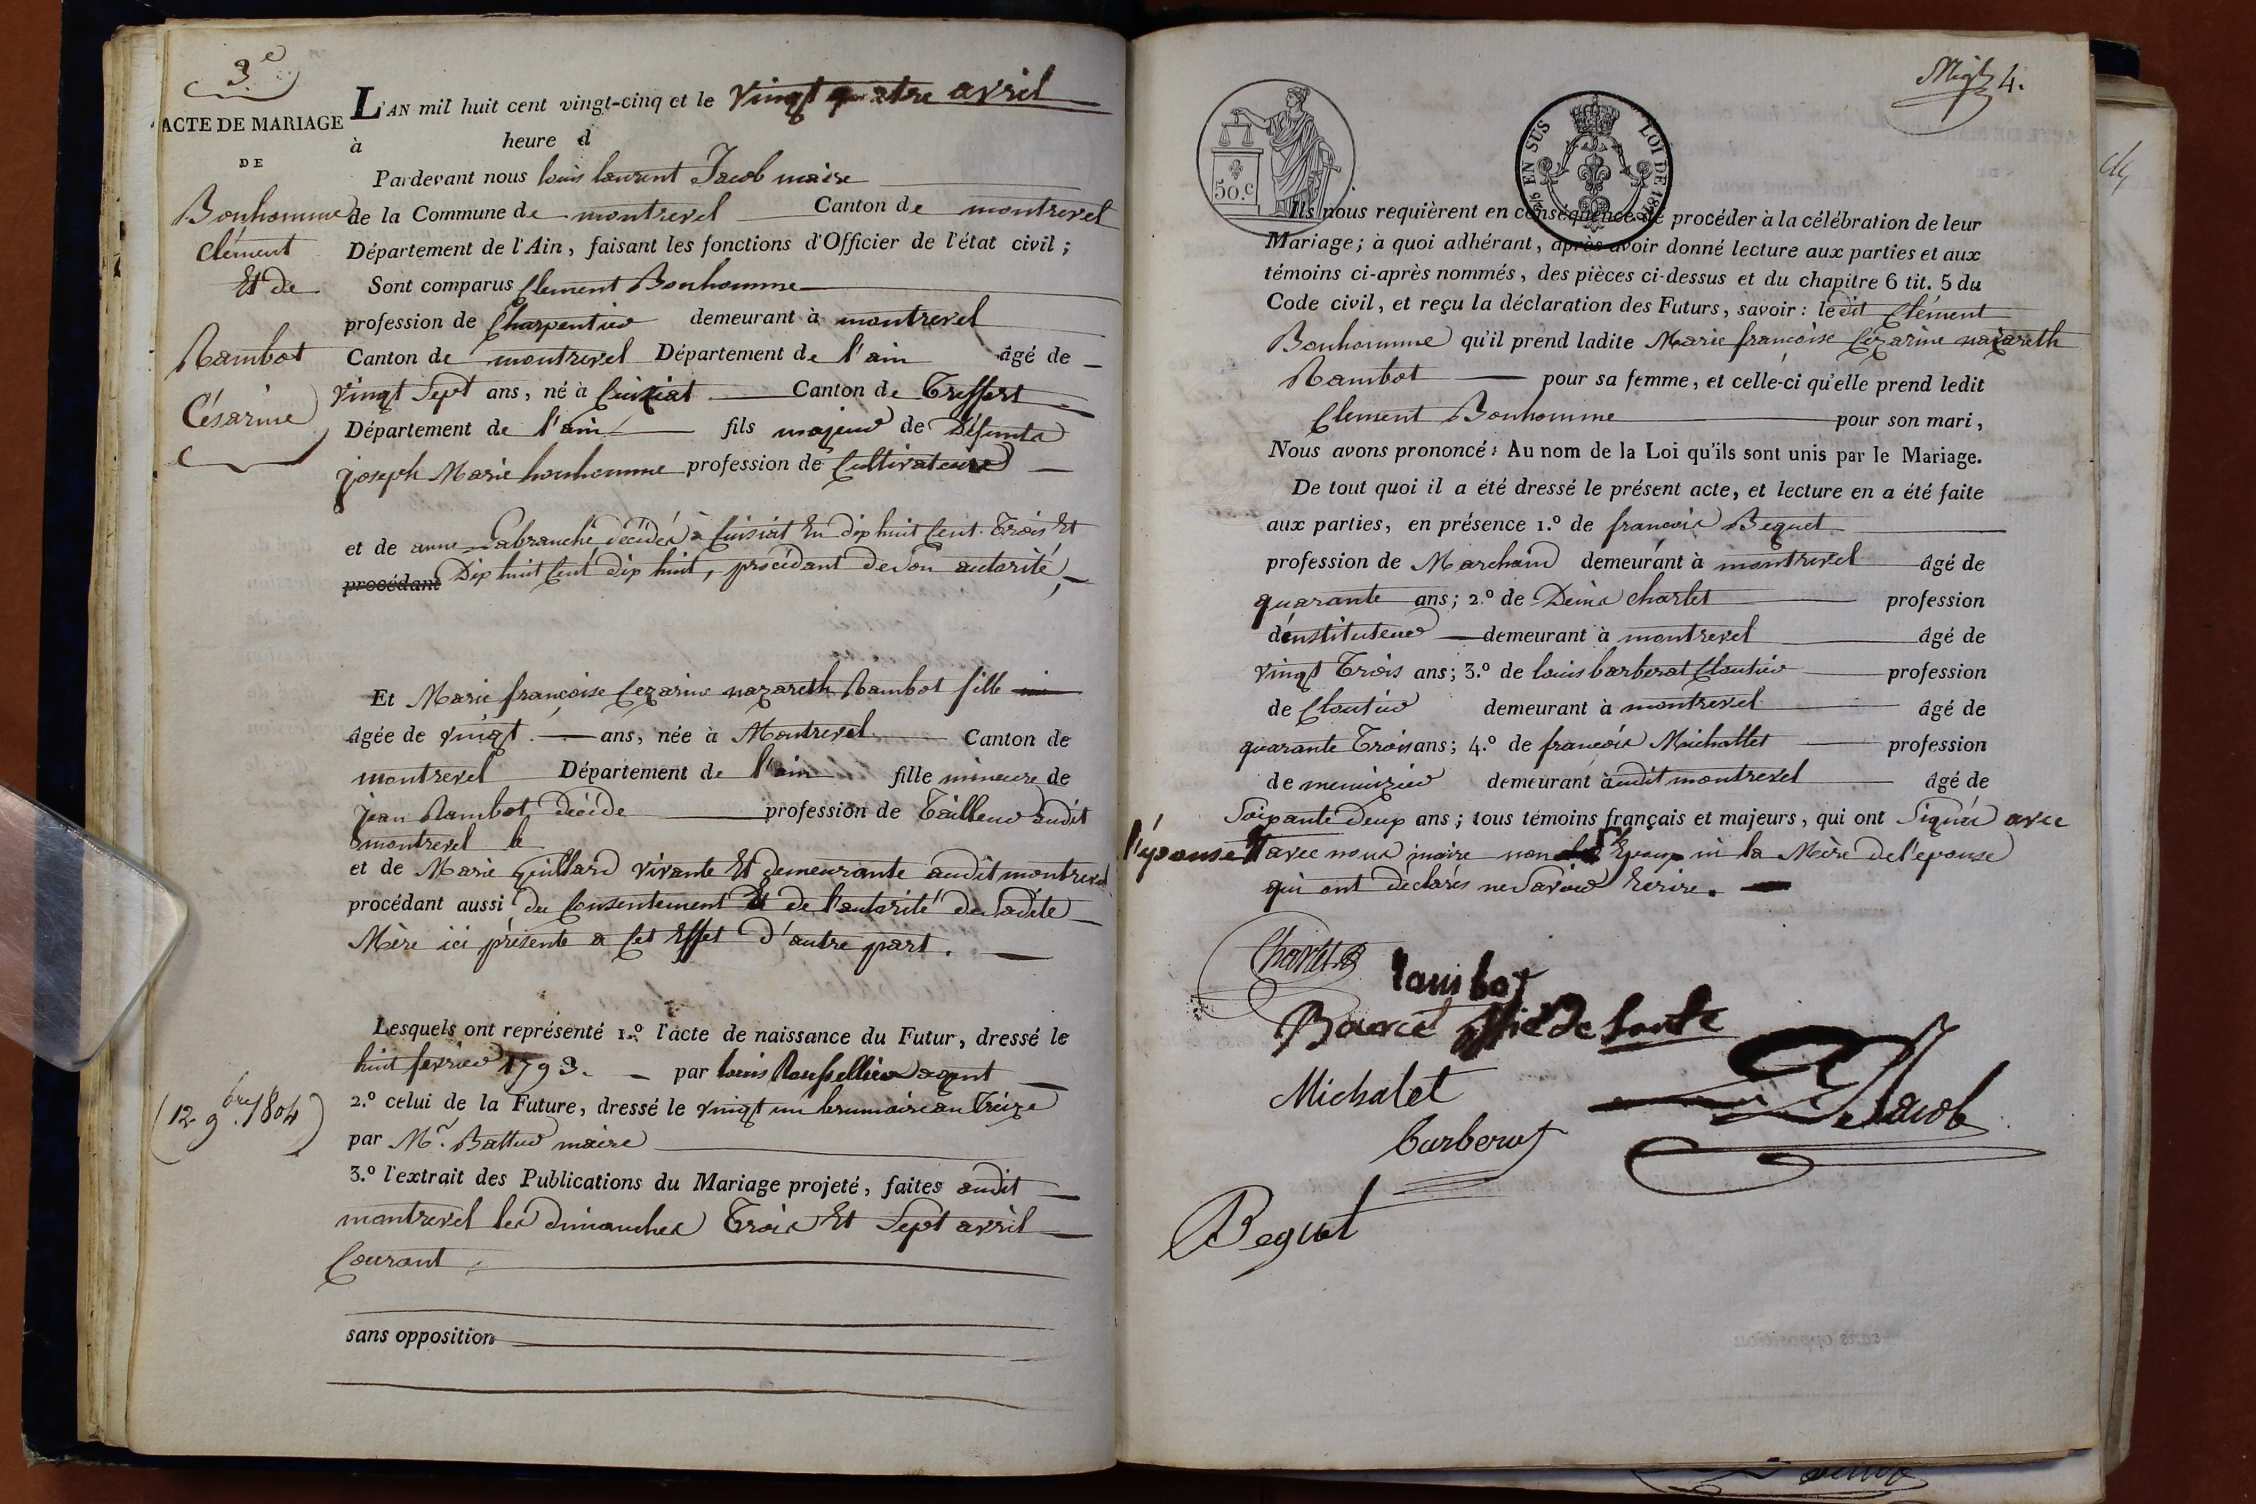 3e
ACTE DE MARIAGE
DE
Bonhomme
Clément
Et de
Rambot
Césarine
(12 9bre 1804)
L'AN mil huit cent vingt-cinq et le vingt quatre avril
à heure d
Pardevant nous louis laurent Jacob maire
de la Commune de montrevel Canton de montrevel
Département de l'Ain, faisant les fonctions d'Officier de l'état civil ;
Sont comparus Clement Bonhomme
profession de Charpentier demeurant à montrevel
Canton de montrevel Département de l'ain âgé de
vingt Sept ans, né à Cuisiat Canton de Treffort
Département de l'ain fils majeur de Défunts
joseph Marie bonhomme profession de Cultivateur
et de anne Labranche décédés à Cuisiat En dix huit Cent Trois Et
procédant Dix huit Cent dix huit, procédant de Son autorité,
Et Marie françoise Cezarine nazareth Rambot fille
âgée de vingt ans, née à Montrevel Canton de
montrevel Département de l'ain fille mineure de
jean Rambot décédé profession de Tailleur audit
montrevel le
et de Marie Guillard vivante Et demeurante audit montrevel
procédant aussi du Consentement Et de l'autorité de Sadite
Mère ici présente a Cet Effet d'autre part.
Lesquels ont représenté 1.º l'acte de naissance du Futur, dressé le
huit fevrier 1793. par louis Roussellier agent
2.º celui de la Future, dressé le vingt un brumaire an Treize
par Mr. Battur maire
3.º l'extrait des Publications du Mariage projeté, faites audit
montrevel les dimanches Trois Et Sept avril
Courant,
sans opposition
4.
50.c
EN SUS LOI DE 1816
Ils nous requièrent en conséquence de procéder à la célébration de leur
Mariage; à quoi adhérant, après avoir donné lecture aux parties et aux
témoins ci-après nommés, des pièces ci-dessus et du chapitre 6 tit. 5 du
Code civil, et reçu la déclaration des Futurs, savoir : ledit Clément
Bonhomme qu'il prend ladite Marie françoise Cezarine nazareth
Rambot pour sa femme, et celle-ci qu'elle prend ledit
Clement Bonhomme pour son mari,
Nous avons prononcé : Au nom de la Loi qu'ils sont unis par le Mariage.
De tout quoi il a été dressé le présent acte, et lecture en a été faite
aux parties, en présence 1.º de françois Bequet
profession de Marchand demeurant à montrevel âgé de
quarante ans; 2.º de Denis charlet profession
d'instituteur demeurant à montrevel âgé de
vingt Trois ans; 3.º de louis barberat Cloutier profession
de Cloutier demeurant à montrevel âgé de
quarante Trois ans; 4.º de françois Michallet profession
de menuizier demeurant à audit montrevel âgé de
Soixante deux ans; tous témoins français et majeurs, qui ont Signés avec
l'épouse Et avec nous maire non Epoux ni la Mère de l'epouse
qui ont déclarés ne Savoir Ecrire.
rambot
Michalet
barberat
Jacob
Bequet